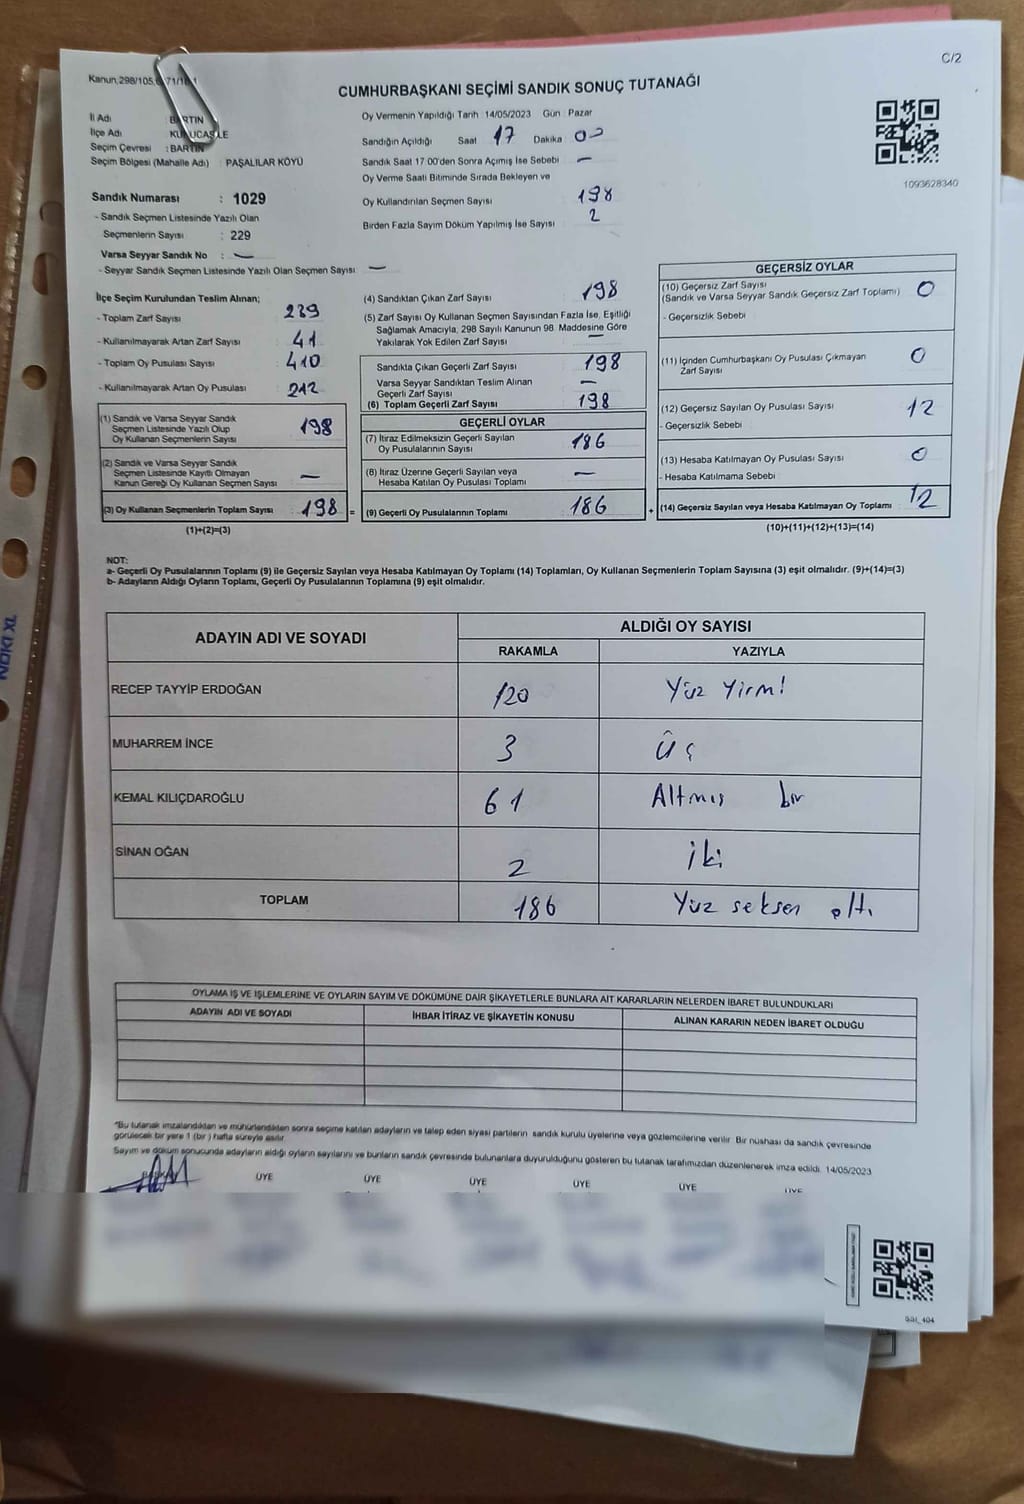 C/2
Kanun,298/105,
CUMHURBAŞKANI SEÇİMİ SANDIK SONUÇ TUTANAĞI
İl Adı BARTIN
İlçe Adı
Seçim Çevresi : BARTIN
Seçim Bölgesi (Mahalle Adı) : PAŞALILAR KÖYÜ
Sandık Numarası : 1029
- Sandık Seçmen Listesinde Yazılı Olan
Seçmenlerin Sayısı : 229
Varsa Seyyar Sandık No : —
- Seyyar Sandık Seçmen Listesinde Yazılı Olan Seçmen Sayısı —
Oy Vermenin Yapıldığı Tarih 14/05/2023 Gün : Pazar
Sandığın Açıldığı Saat 17 Dakika 00
Sandık Saat 17:00'den Sonra Açımış İse Sebebi —
Oy Verme Saati Bitiminde Sırada Bekleyen ve
Oy Kullandırılan Seçmen Sayısı 198
Birden Fazla Sayım Döküm Yapılmış İse Sayısı 2
1093628340
İlçe Seçim Kurulundan Teslim Alınan;
- Toplam Zarf Sayısı : 239
- Kullanılmayarak Artan Zarf Sayısı : 41
- Toplam Oy Pusulası Sayısı : 410
- Kullanılmayarak Artan Oy Pusulası : 212
(1) Sandık ve Varsa Seyyar Sandık
Seçmen Listesinde Yazılı Olup
Oy Kullanan Seçmenlerin Sayısı 198
(2) Sandık ve Varsa Seyyar Sandık
Seçmen Listesinde Kayıtlı Olmayan
Kanun Gereği Oy Kullanan Seçmen Sayısı —
(3) Oy Kullanan Seçmenlerin Toplam Sayısı 198 =
(1)+(2)=(3)
(4) Sandıktan Çıkan Zarf Sayısı 198
(5) Zarf Sayısı Oy Kullanan Seçmen Sayısından Fazla İse, Eşitliği
Sağlamak Amacıyla, 298 Sayılı Kanunun 98. Maddesine Göre
Yakılarak Yok Edilen Zarf Sayısı —
Sandıkta Çıkan Geçerli Zarf Sayısı 198
Varsa Seyyar Sandıktan Teslim Alınan
Geçerli Zarf Sayısı —
(6) Toplam Geçerli Zarf Sayısı 198
GEÇERLİ OYLAR
(7) İtiraz Edilmeksizin Geçerli Sayılan
Oy Pusulalarının Sayısı 186
(8) İtiraz Üzerine Geçerli Sayılan veya
Hesaba Katılan Oy Pusulası Toplamı —
(9) Geçerli Oy Pusulalarının Toplamı 186 +
GEÇERSİZ OYLAR
(10) Geçersiz Zarf Sayısı
(Sandık ve Varsa Seyyar Sandık Geçersiz Zarf Toplamı) 0
- Geçersizlik Sebebi
(11) İçinden Cumhurbaşkanı Oy Pusulası Çıkmayan
Zarf Sayısı 0
(12) Geçersiz Sayılan Oy Pusulası Sayısı 12
- Geçersizlik Sebebi
(13) Hesaba Katılmayan Oy Pusulası Sayısı 0
- Hesaba Katılmama Sebebi :
(14) Geçersiz Sayılan veya Hesaba Katılmayan Oy Toplamı 12
(10)+(11)+(12)+(13)=(14)
NOT:
a- Geçerli Oy Pusulalarının Toplamı (9) ile Geçersiz Sayılan veya Hesaba Katılmayan Oy Toplamı (14) Toplamları, Oy Kullanan Seçmenlerin Toplam Sayısına (3) eşit olmalıdır. (9)+(14)=(3)
b- Adayların Aldığı Oyların Toplamı, Geçerli Oy Pusulalarının Toplamına (9) eşit olmalıdır.
ADAYIN ADI VE SOYADI
ALDIĞI OY SAYISI
RAKAMLA YAZIYLA
RECEP TAYYİP ERDOĞAN 120 Yüz Yirmi
MUHARREM İNCE 3 Üç
KEMAL KILIÇDAROĞLU 61 Altmış bir
SİNAN OĞAN 2 iki
TOPLAM 186 Yüz seksen altı
OYLAMA İŞ VE İŞLEMLERİNE VE OYLARIN SAYIM VE DÖKÜMÜNE DAİR ŞİKAYETLERLE BUNLARA AİT KARARLARIN NELERDEN İBARET BULUNDUKLARI
ADAYIN ADI VE SOYADI İHBAR İTİRAZ VE ŞİKAYETİN KONUSU ALINAN KARARIN NEDEN İBARET OLDUĞU
*Bu tutanak imzalandıktan ve mühürlendikten sonra seçime katılan adayların ve talep eden siyasi partilerin sandık kurulu üyelerine veya gözlemcilerine verilir. Bir nushası da sandık çevresinde
görülecek bir yere 1 (bir) hafta süreyle asılır.
Sayım ve döküm sonucunda adayların aldığı oyların sayılarını ve bunların sandık çevresinde bulunanlara duyurulduğunu gösteren bu tutanak tarafımızdan düzenlenerek imza edildi. 14/05/2023
ÜYE ÜYE ÜYE ÜYE ÜYE ÜYE